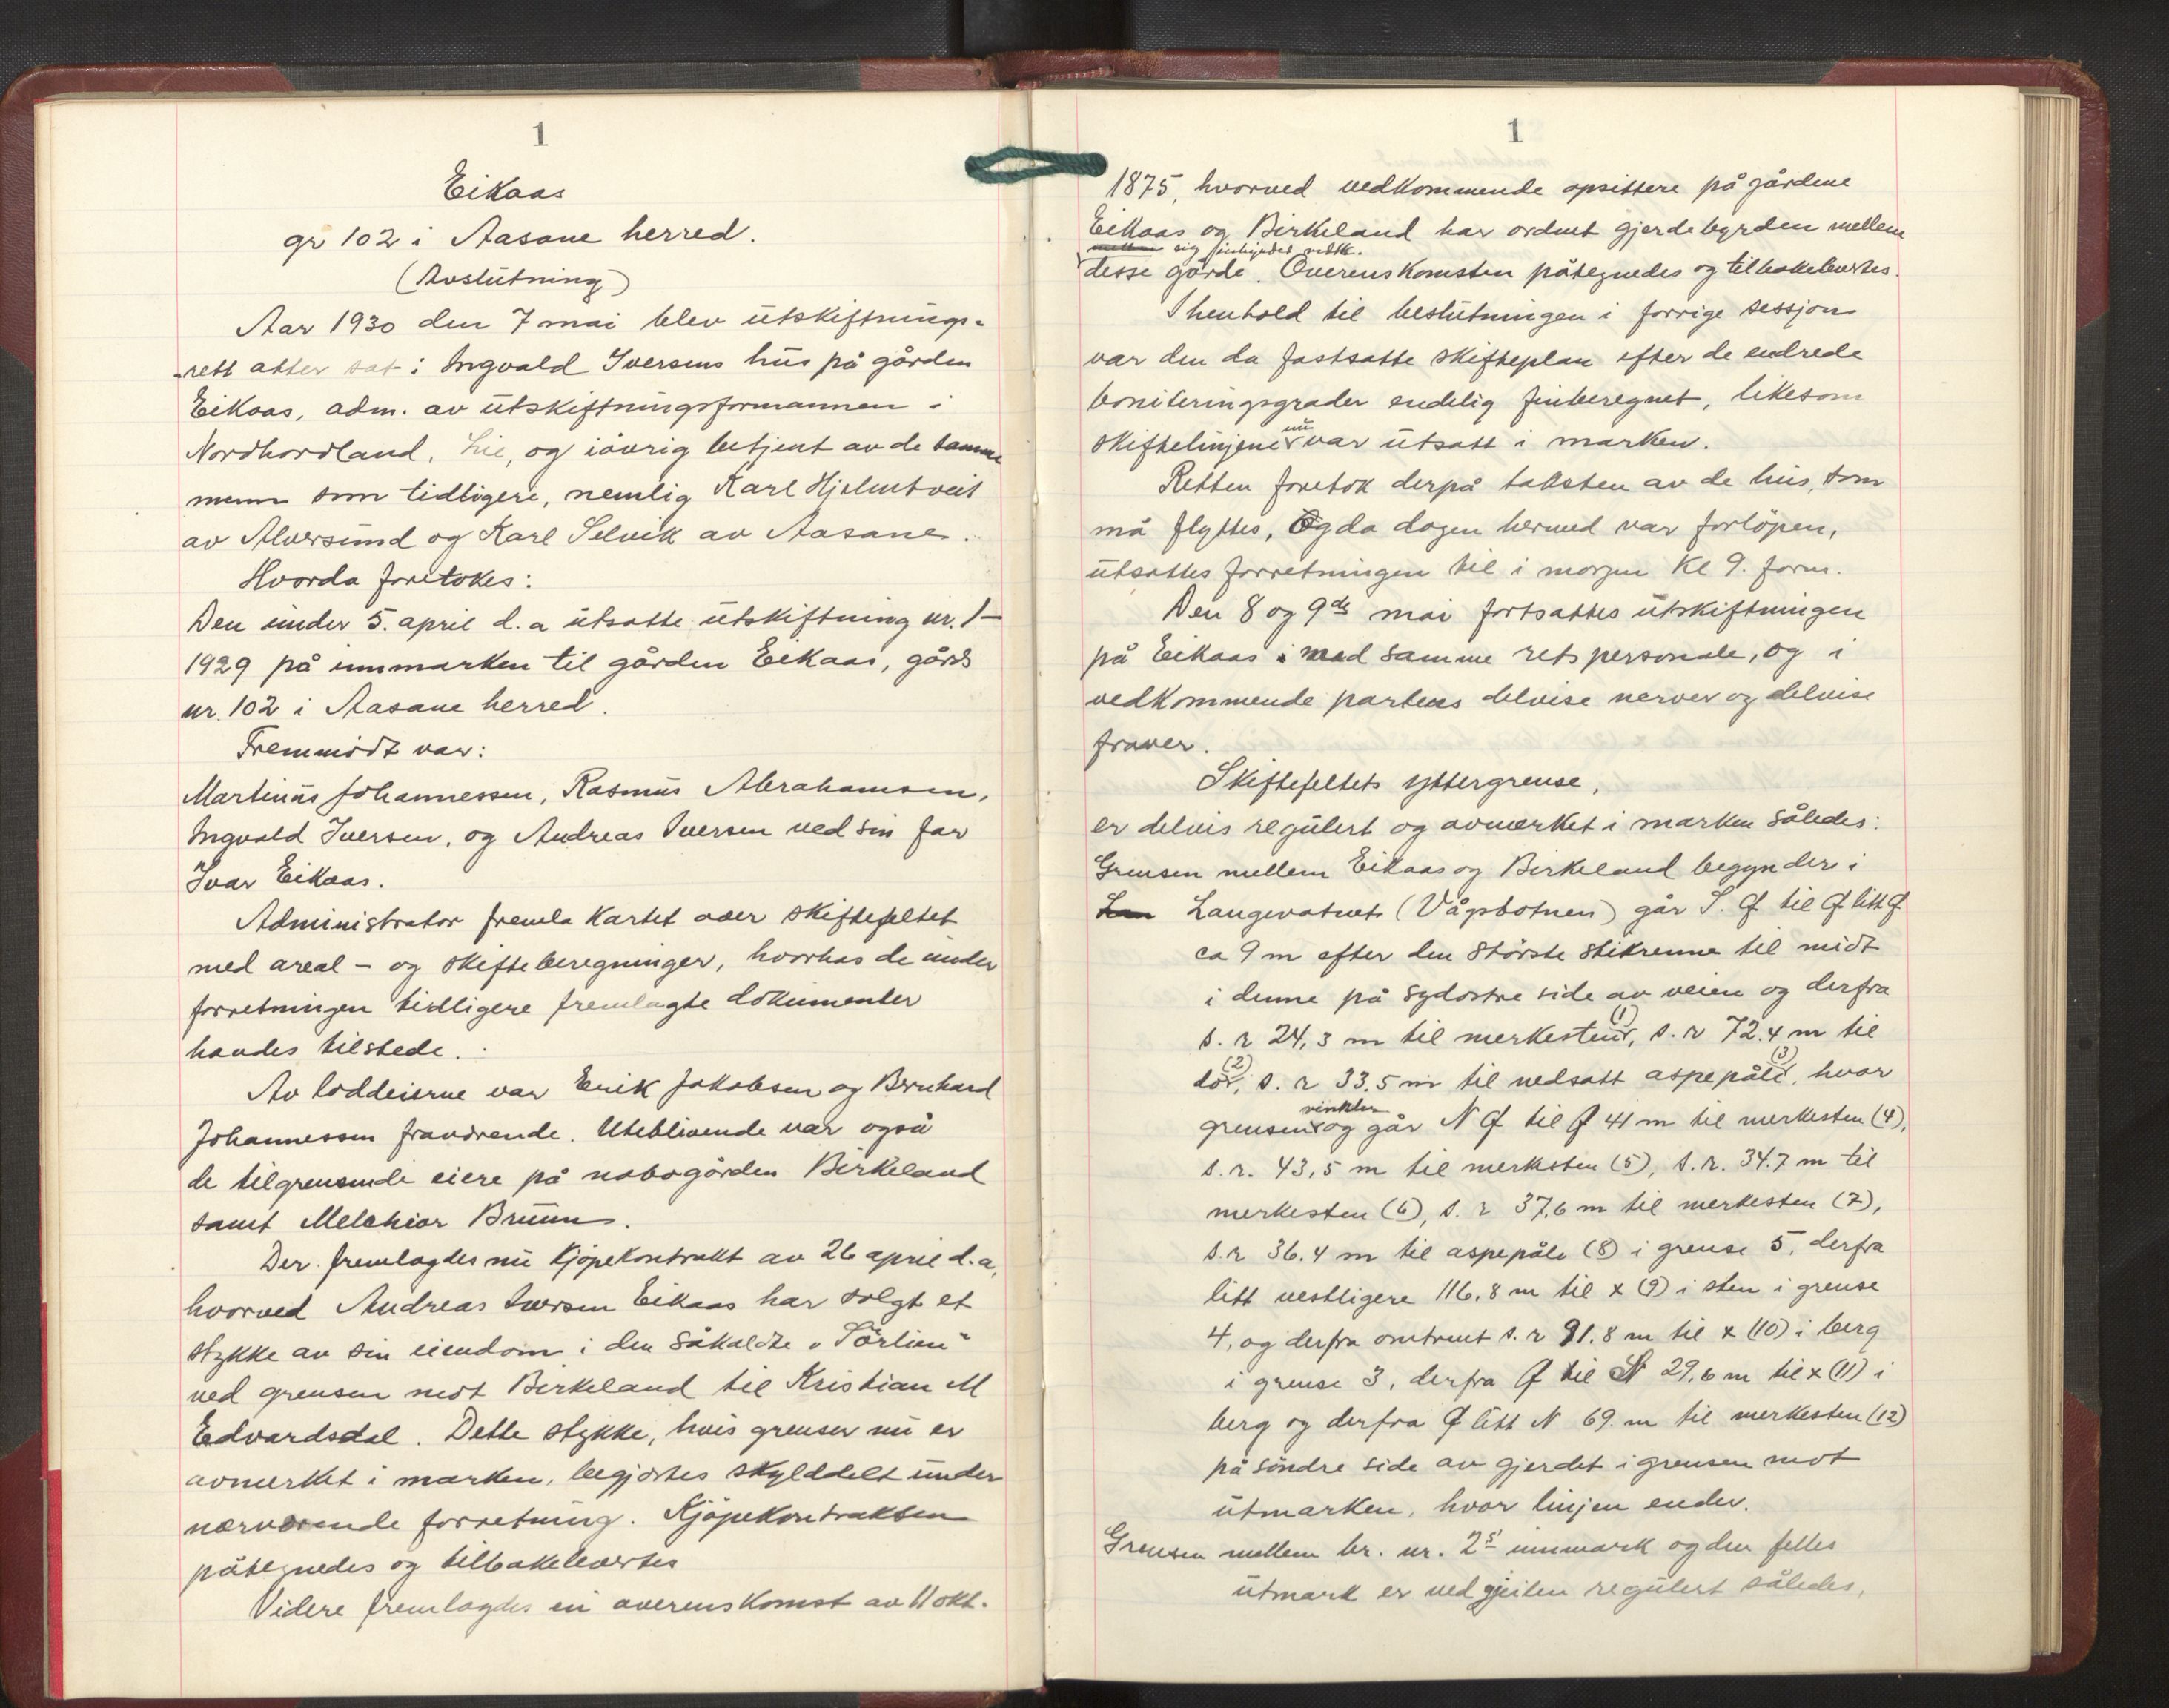 1
Eikaas
gr 102 i Aasane herred.
(Avslutning)
Aar 1930 den 7 mai blev utskiftnings-
-rett atter sat i Ingvald Iversens hus på gården
Eikaas, adm. av utskiftningsformannen i
Nordhordland, Lie, og iøvrig betjent av de samme
menn som tidligere, nemlig Karl Hjelmtveit
av Alversund og Karl Selvik av Aasane.
Hvorda foretokes:
Den under 5. april d. a utsatte utskiftning nr. 1-
1929 på innmarken til gården Eikaas, gårds
nr. 102 i Aasane herred.
Fremmødt var:
Martinus Johannessen, Rasmus Abrahamsen,
Ingvald Iversen, og Andreas Iversen ved sin far
Ivar Eikaas.
Administrator fremla kartet over skiftefeltet
med areal- og skifteberegninger, hvorhos de under
forretningen tidligere fremlagte dokumenter
havdes tilstede.
Av loddeierne var Erik Jakobsen og Bernhard
Johannessen fraværende. Uteblivende var også
de tilgrensende eiere på nabogården Birkeland
samt Melchior Bruun.
Der fremlagdes nu kjøpekontrakt av 26 april d. a,
hvorved Andreas Iversen Eikaas har solgt et
stykke av sin eiendom i den såkaldte „Sørlien"
ved grensen mot Birkeland til Kristian M
Edvardsdal. Dette stykke, hvis grenser nu er
avmerket i marken, begjærtes skylddelt under
nærværende forretning. Kjøpekontrakten
påtegnedes og tilbakelevertes
Videre fremlagdes en overenskomst av 11 okt.
1
1875, hvorved vedkommende opsittere på gårdene
Eikaas og Birkeland har ordnet gjerdebyrden mellem
sig
desse gårde. Overenskomsten påtegnedes og tilbakelevertes.
I henhold til beslutningen i forrige sessjon
var den da fastsatte skifteplan efter de endrede
boniteringsgrader endelig finberegnet, likesom
skiftelinjene nu var utsatt i marken.
Retten foretok derpå taksten av de hus, som
må flyttes, Og da dagen hermed var forløpen,
utsattes forretningen til i morgen Kl 9. form.
Den 8 og 9de mai fortsattes utskiftningen
på Eikaas i med samme retspersonale, og i
vedkommende parters delvise nerver og delvise
fraver.
Skiftefeltets yttergrense,
er delvis regulert og avmerket i marken således:
Grensen mellem Eikaas og Birkeland begynder i
Lan Langevatnet (Vågsbotnen) går S. Ø til Ø litt Ø
ca 9 m efter den største stikrenne til midt
i denne på sydøstre side av veien og derfra
s. r 24,3 m til merkesten (1), s. r 72.4 m til
do (2), s. r 33.5 m til nedsatt aspepåle (3), hvor
grensen vinkler og går N Ø til Ø 41 m til merkesten (4),
s. r. 43,5 m til merkesten (5), s. r. 34.7 m til
merkesten (6), s. r 37.6 m til merkesten (7),
s. r 36.4 m til aspepåle (8) i grense 5, derfra
litt vestligere 116,8 m til x (9) i sten i grense
4, og derfra omtrent s. r 91.8 m til x (10) i berg
i grense 3, derfra Ø til N 29,6 m til x (11) i
berg og derfra Ø litt N 69. m til merkesten (12)
på søndre side av gjerdet i grensen mot
utmarken, hvor linjen ender.
Grensen mellem br. nr. 2s innmark og den felles
utmark er ved geilen regulert således,